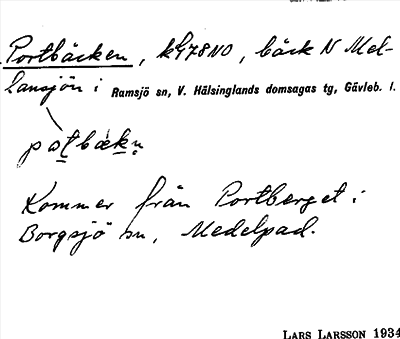 Portbäcken, k 478 NO, bäck N Mel-
lansjön i Ramsjö sn, V. Hälsinglands domsagas tg, Gävleb. l.
Kommer från Portberget i
Borgsjö sn, Medelpad.
LARS LARSSON 1934